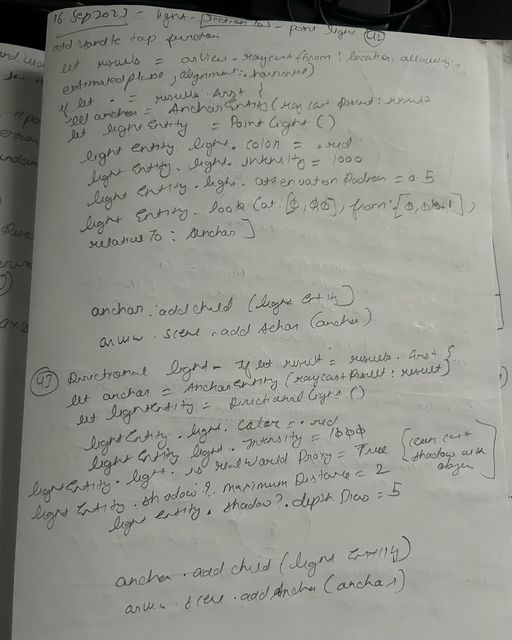 16 Sep 2023 - light - Section 10 - point light 42
add Handle tap function
let results = arView.raycast(from: location, allowing:
estimatedplane, alignment: horizontal)
if let = results.first {
let anchor = AnchorEntity(raycast Result: result
let lightEntity = PointLight ()
light Entity. light. color = .red
light Entity. light. intensity = 1000
light Entity. light. attenuation Radius = 0.5
light Entity. look (at: [0,0,0], from: [0,0,0.1],
relativeTo: anchor]
anchor. add child (light Entity]
arview. Scene. add Achor (anchor)
43 Directional light - If let result = results. first {
let anchor = AnchorEntity (raycastResult: result)
let lightEntity = Directional Light ()
lightEntity. light. Color = .red
lightEntity light. Intensity = 1000
light Entity. light. is realWorld Proxy = True [can cast
shadow with
object]
light Entity. shadow?. maximum Distance = 2
light entity. shadow?. depth Bias = 5
anchor. add child (light Entity)
arview. scene. add Anchor (anchor)